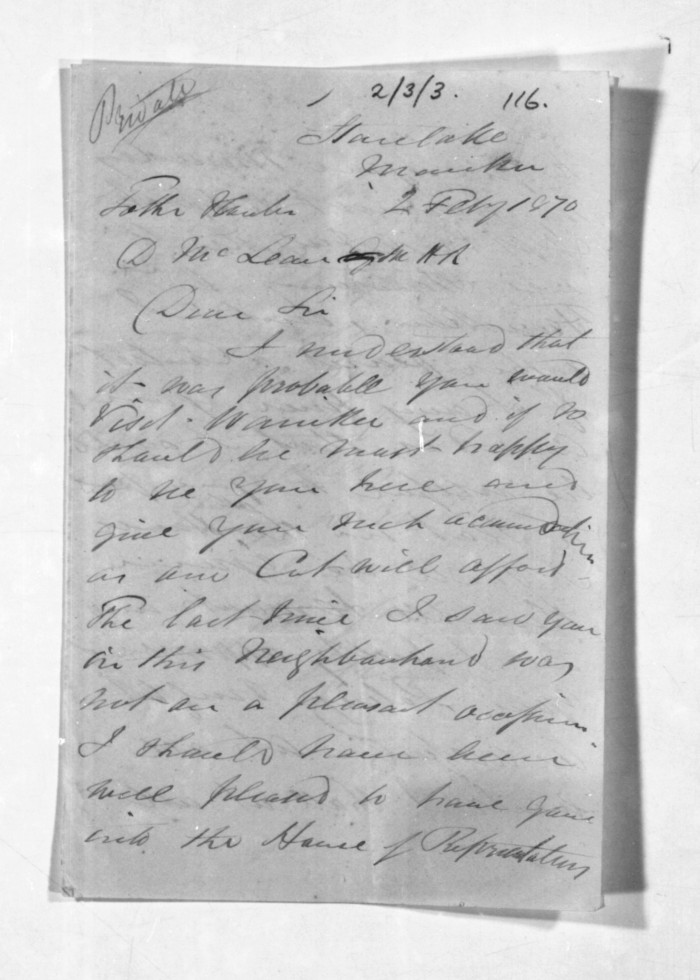 Private
2/3/3. 116.
2 Feby 1870
D McLean M H R
Dear Sir
I understand that
it was probable you would
visit and if so
should be most happy
to see you here and
give you such accomodation
as our Cot will afford
The last time I saw you
in this Neighbourhood was
not on a pleasant occasion.
I should have been
well pleased to have gone
into the House of Representatives